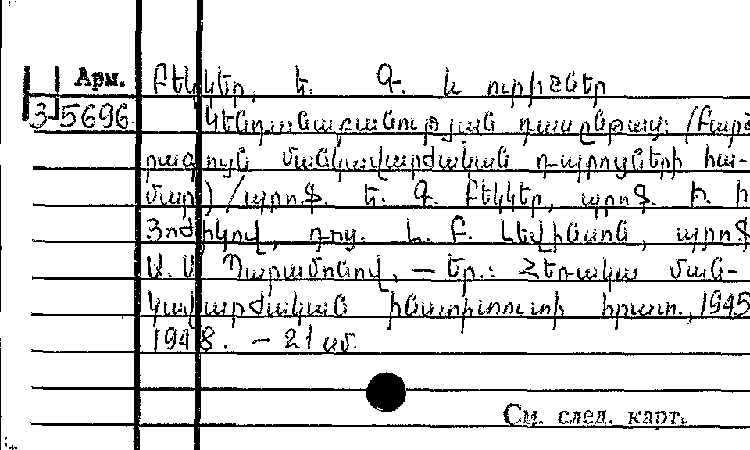 Арм. Բեկկեր, Ե. Գ. և ուրիշներ
3-5696 Կենդանաբանության դասընթաց: /Բարձ
րագույն մանկավարժական դպրոցների հա-
մար) /պրոֆ. Ե. Գ. Բեկկեր, պրոֆ. Ի. Ի
Յոժիկով, դոց. Լ. Բ. Լևինսոն, պրոֆ
Ա. Ա Պարամոնով, — Եր.: Հեռակա ման-
կավարժական ինստիտուտի հրատ., 1945
1948. — 21 սմ.
См. след. карт.